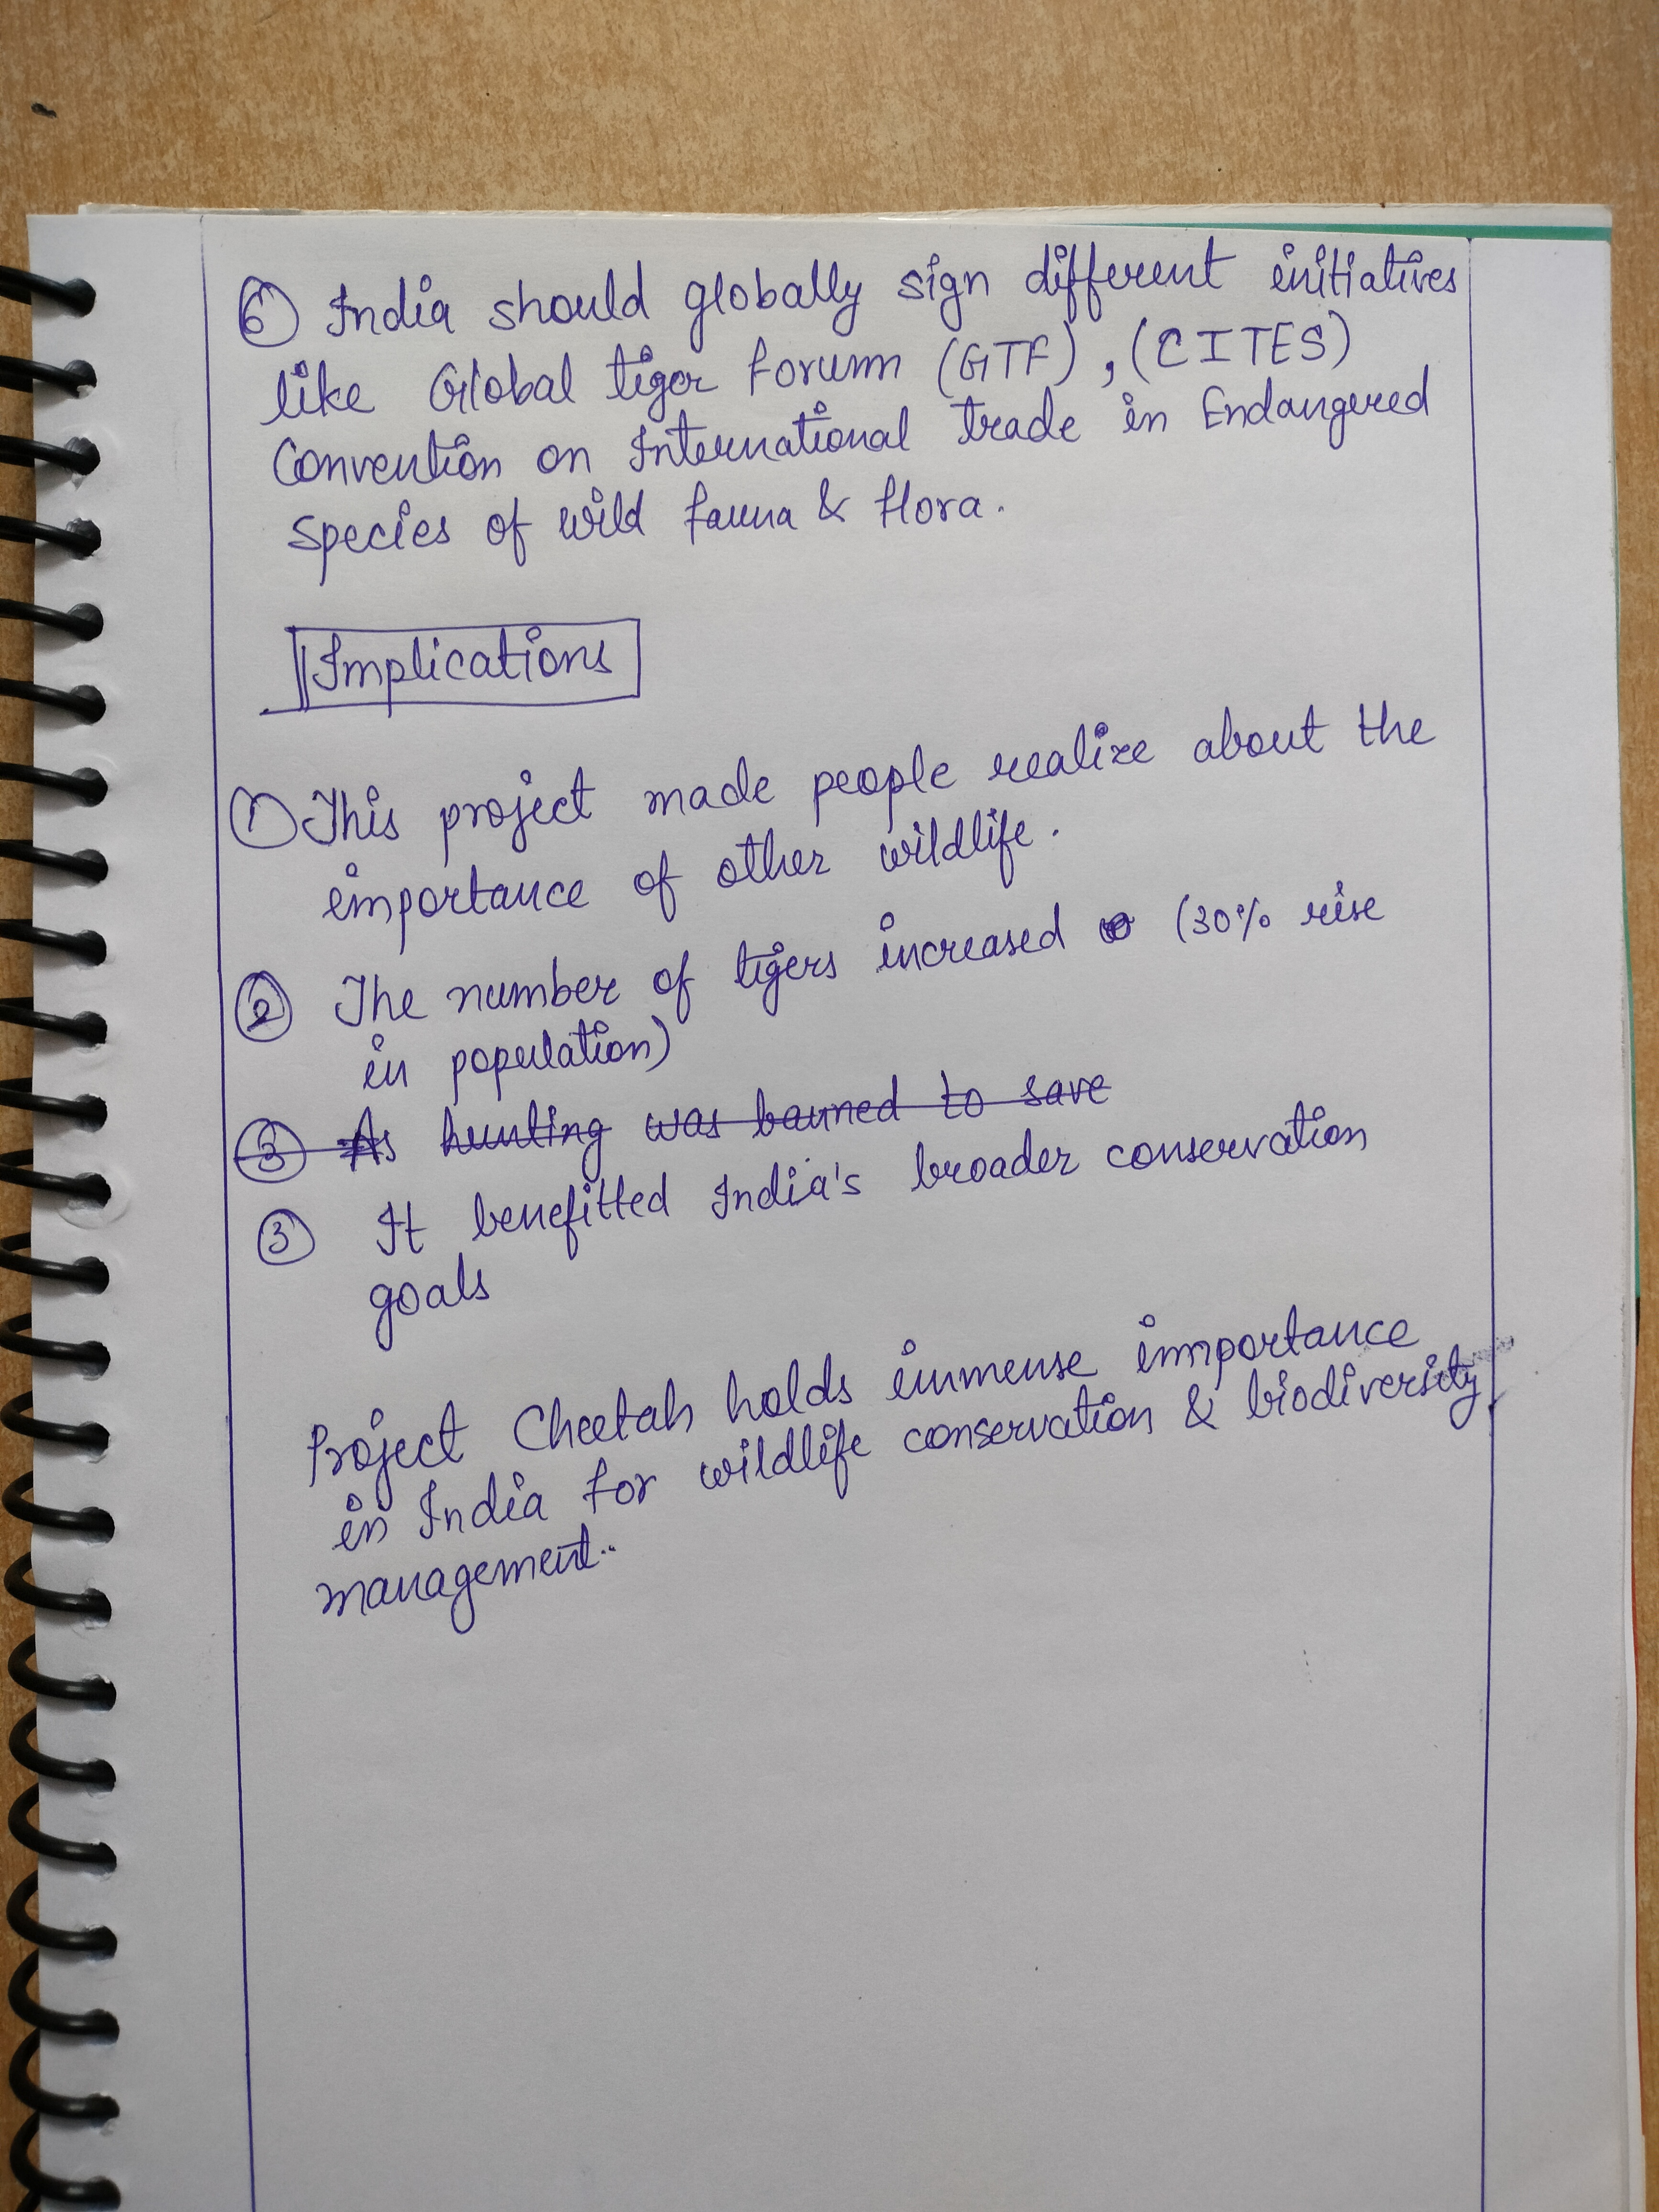 ⑥ India should globally sign different initiatives
like Global tiger forum (GTF), (CITES)
Convention on International trade in Endangered
species of wild fauna & flora.
Implications
① This project made people realize about the
importance of other wildlife.
② The number of tigers increased (30% rise
in population)
③ As hunting was banned to save
③ It benefitted India's broader conservation
goals
Project Cheetah holds immense importance
in India for wildlife conservation & biodiversity
management..